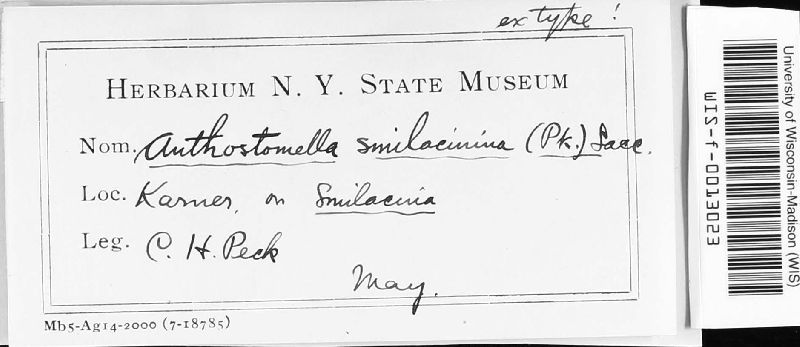 ex type!
HERBARIUM N. Y. STATE MUSEUM
Nom. Anthostomella smilacinina (Pk.) Sacc.
Loc. Karner, on Smilacina
Leg. C. H. Peck
May.
Mb5-Ag14-2000 (7-18785)
University of Wisconsin-Madison (WIS)
WIS-f-0013023